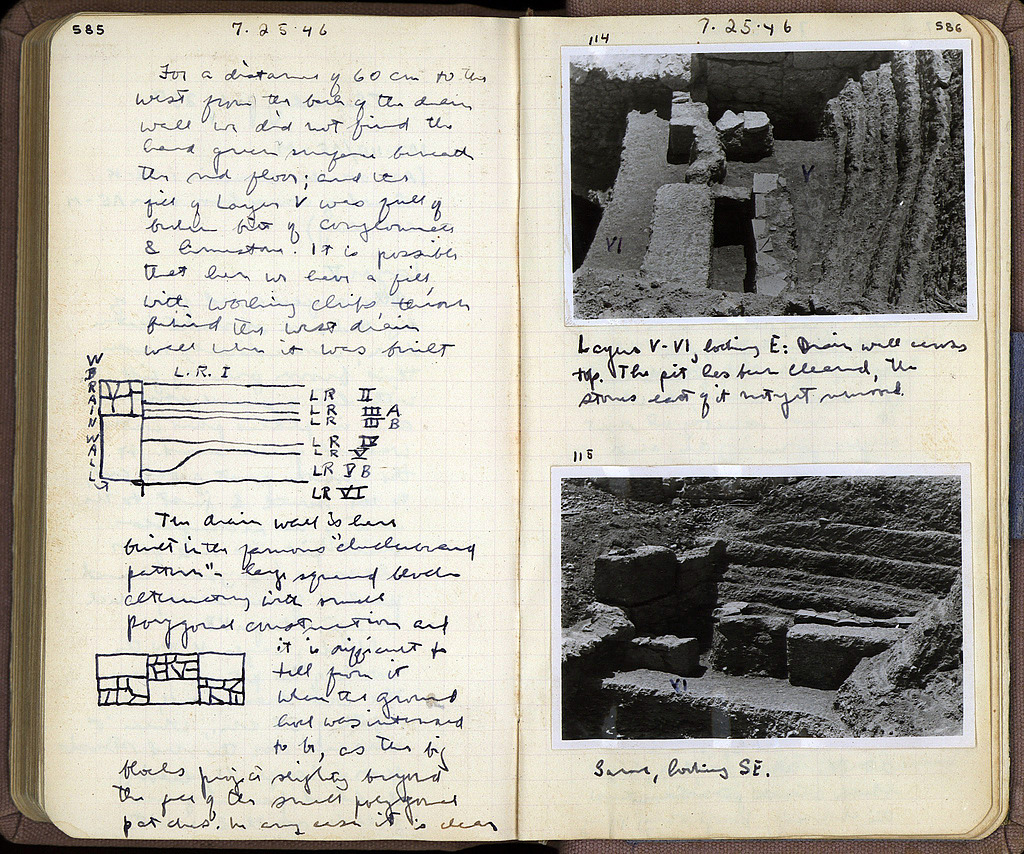 585
7·25·46
For a distance of 60 cm to the
west from the back of the drain
wall we did not find the
hard green surface beneath
the red floor; and the
fill of Layer V was full of
broken bits of conglomerate
& limestone. It is possible
that here we have a fill
with working chips thrown
behind the west drain
wall when it was built
L.R.I
W DRAIN WALL
LR II
LR III A
LR III B
LR IV
LR V
LR V B
LR VI
The drain wall is here
built in the famous "checkerboard
pattern" - large squared blocks
alternating with small
polygonal construction and
it is difficult to
tell from it
when the ground
level was intended
to be, as the big
blocks project slightly beyond
the face of the small polygonal
patches. In any case it is clear
7·25·46
586
114
V
VI
Layers V-VI, looking E: Drain wall across
top. The pit has been cleared, the
stones east of it not yet removed.
115
VI
Same, looking SE.